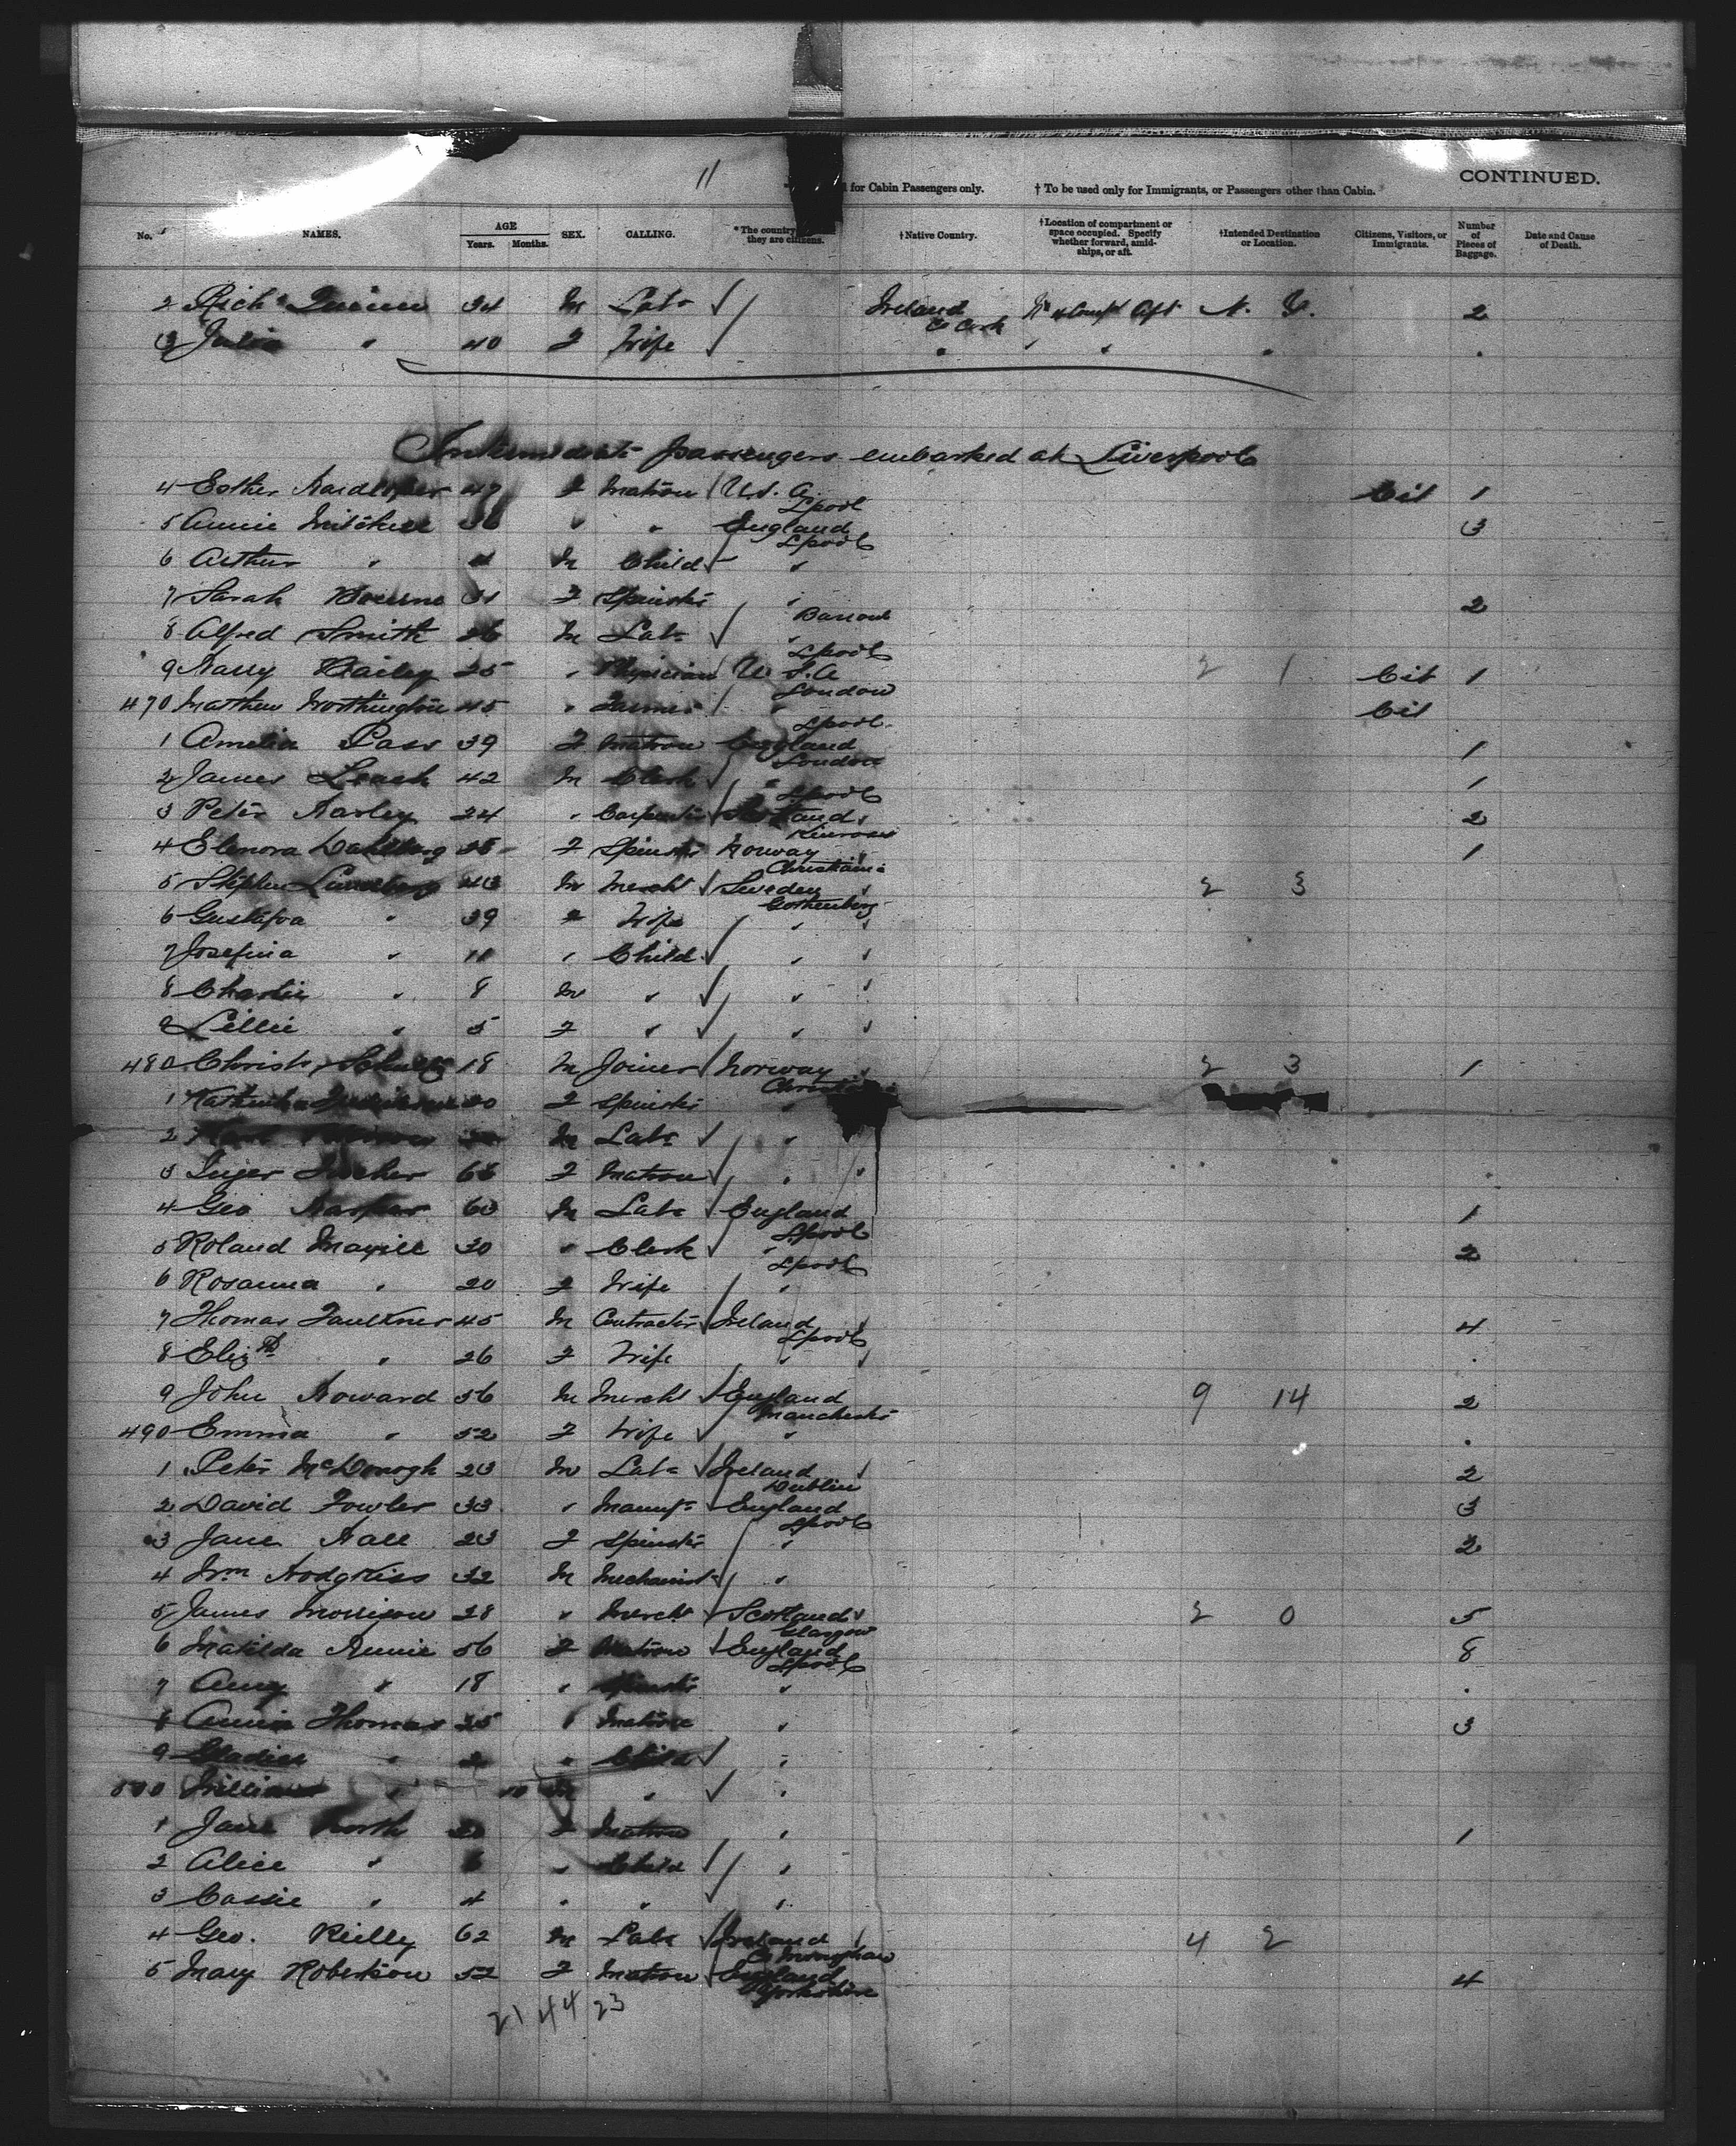 11
for Cabin Passengers only. † To be used only for Immigrants, or Passengers other than Cabin. CONTINUED.
No. NAMES. AGE Years. Months. SEX. CALLING. *The country they are citizens. †Native Country. †Location of compartment or space occupied. Specify whether forward, amidships, or aft. †Intended Destination or Location. Citizens, Visitors, or Immigrants. Number of Pieces of Baggage. Date and Cause of Death.
2 Richd Quinn 34 M Labr Ireland Co Cork Aft N. Y. 2
3 Julia " 40 F Wife " " " "
Intermediate passengers embarked at Liverpool
4 Esther 47 F Matron U.S.A. Lpool Cit 1
5 Annie Mitchell 36 " " England Lpool 3
6 Arthur " M Child "
7 Sarah Bourne 31 F Spinster " 2
8 Alfred Smith 26 M Labr " Lpool
9 Harry Bailey 25 " Physician U.S.A London 2 1 Cit 1
470 Matthew Worthington 45 " Farmer " Lpool Cit
1 Amelia Pass 39 F Matron England London 1
2 James Leach 42 M Clerk " Lpool 1
3 Peter Harley 24 " Carpenter Scotland Kinross 2
4 Elenora Dahlberg 25 F Spinster Norway Christiania 1
5 Stephen Lundberg 43 M Mercht Sweden Gothenberg 2 3
6 Gustafva " 39 F Wife "
7 Josefina " 11 " Child "
8 Charlie " 8 M " "
9 Lillie " 5 F " "
480 Christ. Schultz 18 M Joiner Norway 2 3 1
1 20 F Spinster "
2 M Labr "
3 Inger 66 F Matron "
4 Geo 60 M Labr England Lpool 1
5 Roland Magill 30 " Clerk " Lpool 2
6 Rosanna " 20 F Wife "
7 Thomas Faulkner 45 M Contractor Ireland Lpool 4
8 Elizth " 26 F Wife "
9 John Howard 56 M Mercht England Manchester 9 14 2
490 Emma " 52 F Wife "
1 Peter McDonogh 23 M Labr Ireland Dublin 2
2 David Fowler 33 " Manufr England Lpool 3
3 Jane Hall 23 F Spinster " 2
4 Wm Hodgkiss 32 M Mechanist "
5 James Morrison 28 " Mercht Scotland Glasgow 2 0 5
6 Matilda 56 F Matron England Lpool 8
7 Amy " 18 " Spinster "
8 Annie Thomas 25 " Matron " 3
9 Gladis " 2 " Child "
500 William " 10 M " "
1 Jane North F Matron " 1
2 Alice " 6 " Child "
3 Cassie " 4 " " "
4 Geo. Reilly 62 M Labr Ireland Co Monaghan 4 2
5 Mary Robertson 52 F Matron England Yorkshire 4
21 44 23